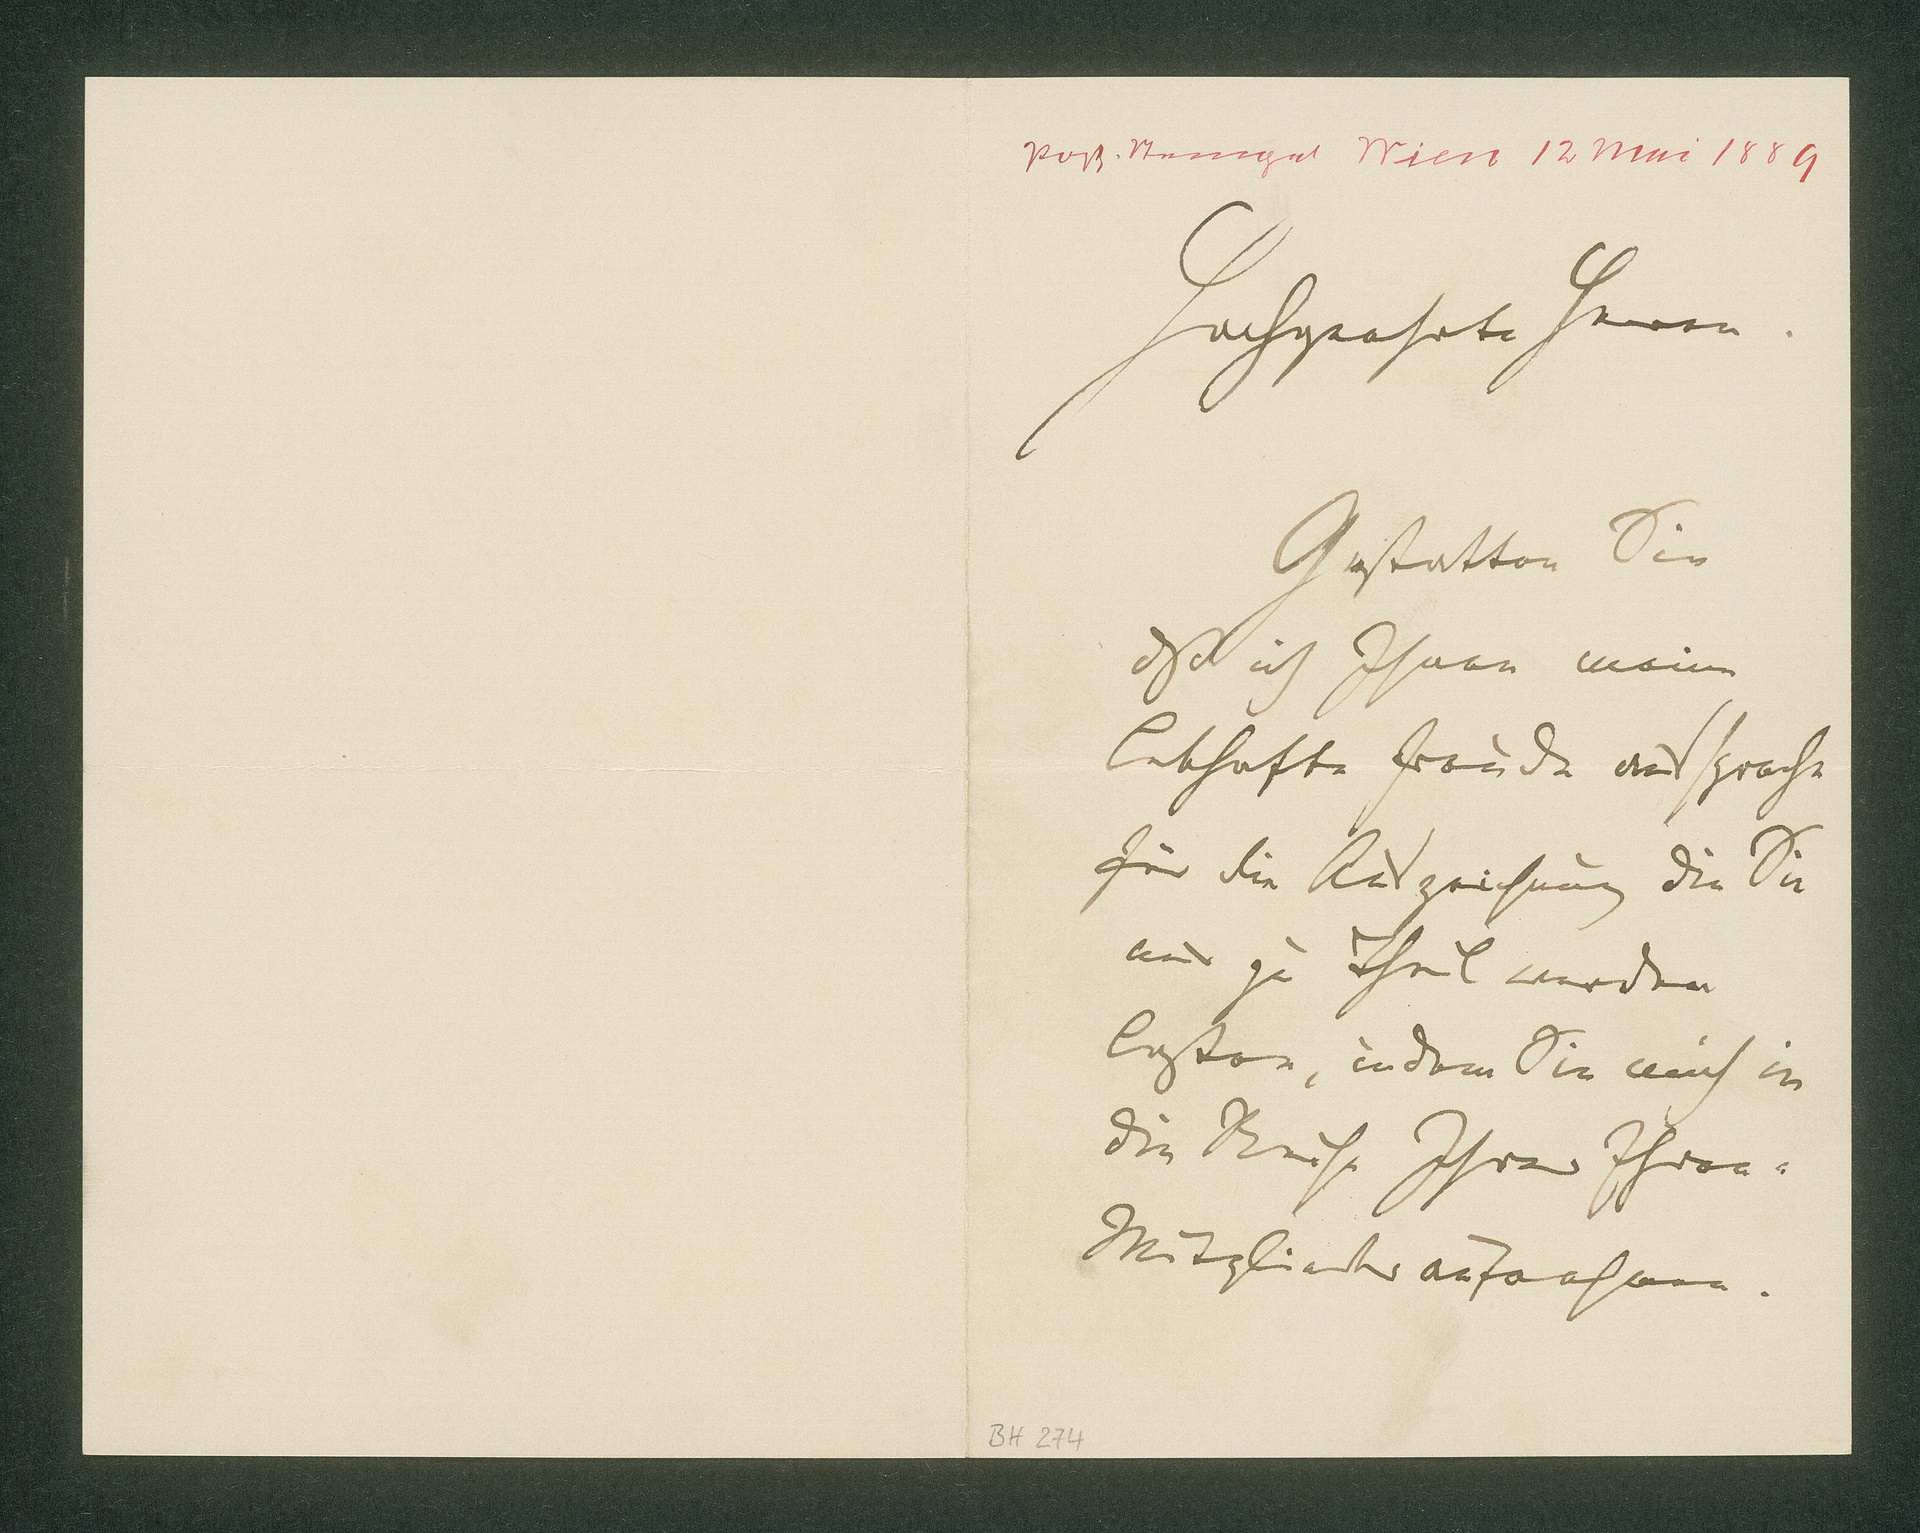 Post-Stempel Wien 12 Mai 1889
Hochgeehrte Herren.
Gestatten Sie
daß ich Ihnen meine
lebhafte Freude ausspreche
für die Auszeichnung die Sie
mir zu Theil werden
ließen, indem Sie mich in
die Reihe Ihrer Ehren-
Mitglieder aufnahmen.
BH 274